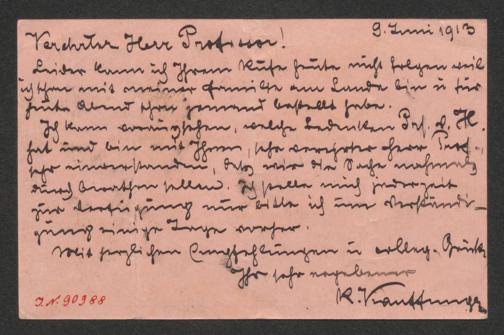 9. Juni 1913
Verehrter Herr Professor!
Leider kann ich Ihrem Rufe heute nicht folgen weil
ich schon mit meiner Familie am Lande bin u für
heute Abend schon jemand bestellt habe.
Ich kann voraussehen, welche Bedenken Prf. d. H.
hat und bin mit Ihnen, sehr verehrter Herr Prof.,
sehr einverstanden, dass wir die Sache nochmals
durchberathen sollen. Ich stelle mich jederzeit
zur Verfügung nur bitte ich um Verständi-
gung einige Tage vorher.
Mit herzlichen Empfehlungen u colleg. Grüße
Ihr sehr ergebener
K.
I.N. 90988